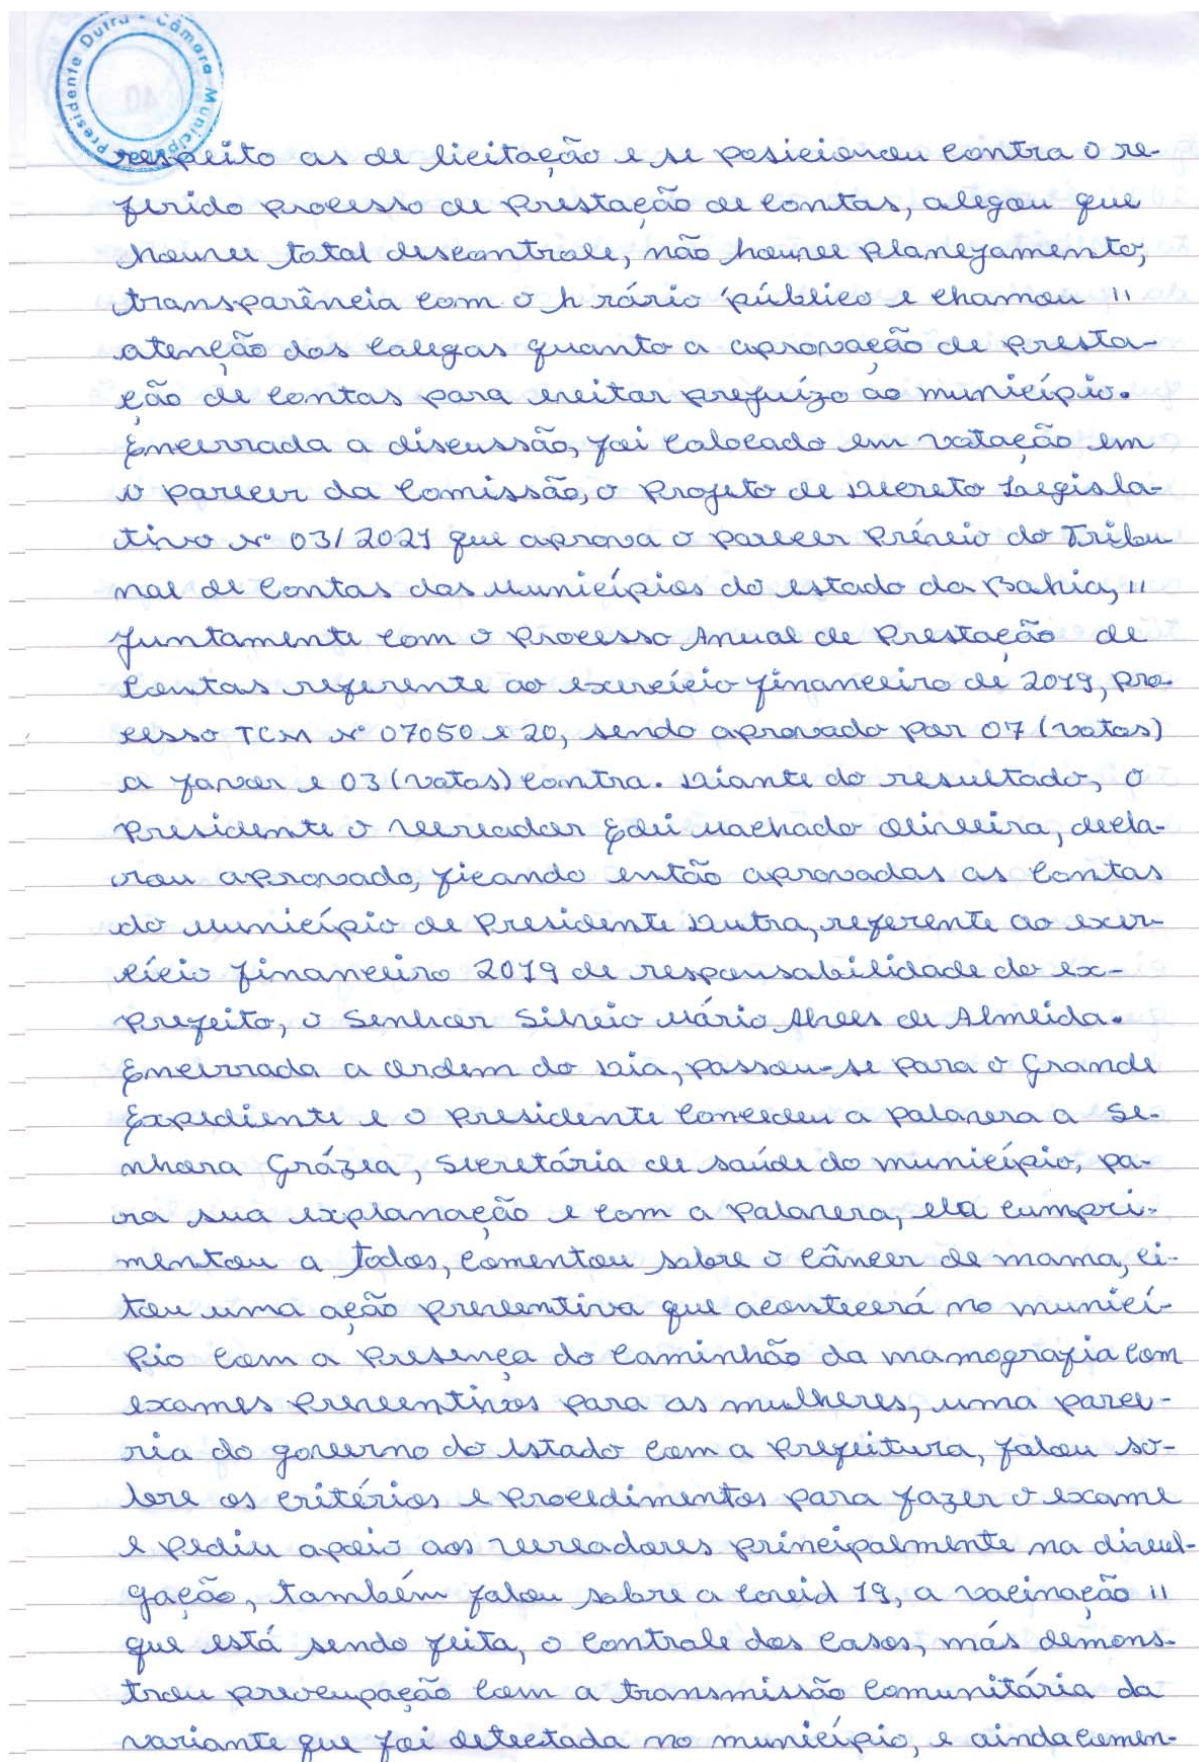 Presidente Dutra - Câmara Municipal
respeito as de licitação e se posicionou contra o re-
ferido processo de Prestação de Contas, alegou que
houve total descontrole, não houve Planejamento,
transparência com o h rário público e chamou "
atenção dos Colegas quanto a aprovação de Presta-
ção de Contas para evitar prejuízo ao município.
Encerrada a discussão, foi Colocado em votação em
o parecer da Comissão, o Projeto de Decreto Legisla-
tivo Nº 03/2021 que aprova o parecer Prévio do Tribu
nal de Contas dos Municípios do estado da Bahia, "
Juntamente com o Processo Anual de Prestação de
Contas referente ao exercício financeiro de 2019, pro-
cesso TCM Nº 07050 e 20, sendo aprovado por 07 (votos)
a favor e 03 (votos) contra. Diante do resultado, o
Presidente o Vereador Edei Machado Oliveira, decla-
rou aprovado, ficando então aprovadas as Contas
do Município de Presidente Dutra, referente ao exer-
cício financeiro 2019 de responsabilidade do ex-
Prefeito, o Senhor Silvio Mário Alves de Almeida.
Encerrada a Ordem do Dia, passou-se para o Grande
Expediente e o Presidente Concedeu a Palavra a Se-
nhora Grázia, Secretária de saúde do município, pa-
ra sua explanação e com a Palavra, ela cumpri-
mentou a Todos, Comentou sobre o Câncer de mama, ci-
tou uma ação preventiva que acontecerá no municí-
pio com a Presença do Caminhão da mamografia com
exames Preventivos para as mulheres, uma parce-
ria do governo do Estado com a Prefeitura, falou so-
bre os critérios e Procedimentos para fazer o exame
e pediu apoio aos vereadores principalmente na divul-
gação, também falou sobre a Covid 19, a vacinação "
que está sendo feita, o Controle dos Casos, más demons-
trou preocupação com a transmissão Comunitária da
variante que foi detectada no município, e ainda comen-